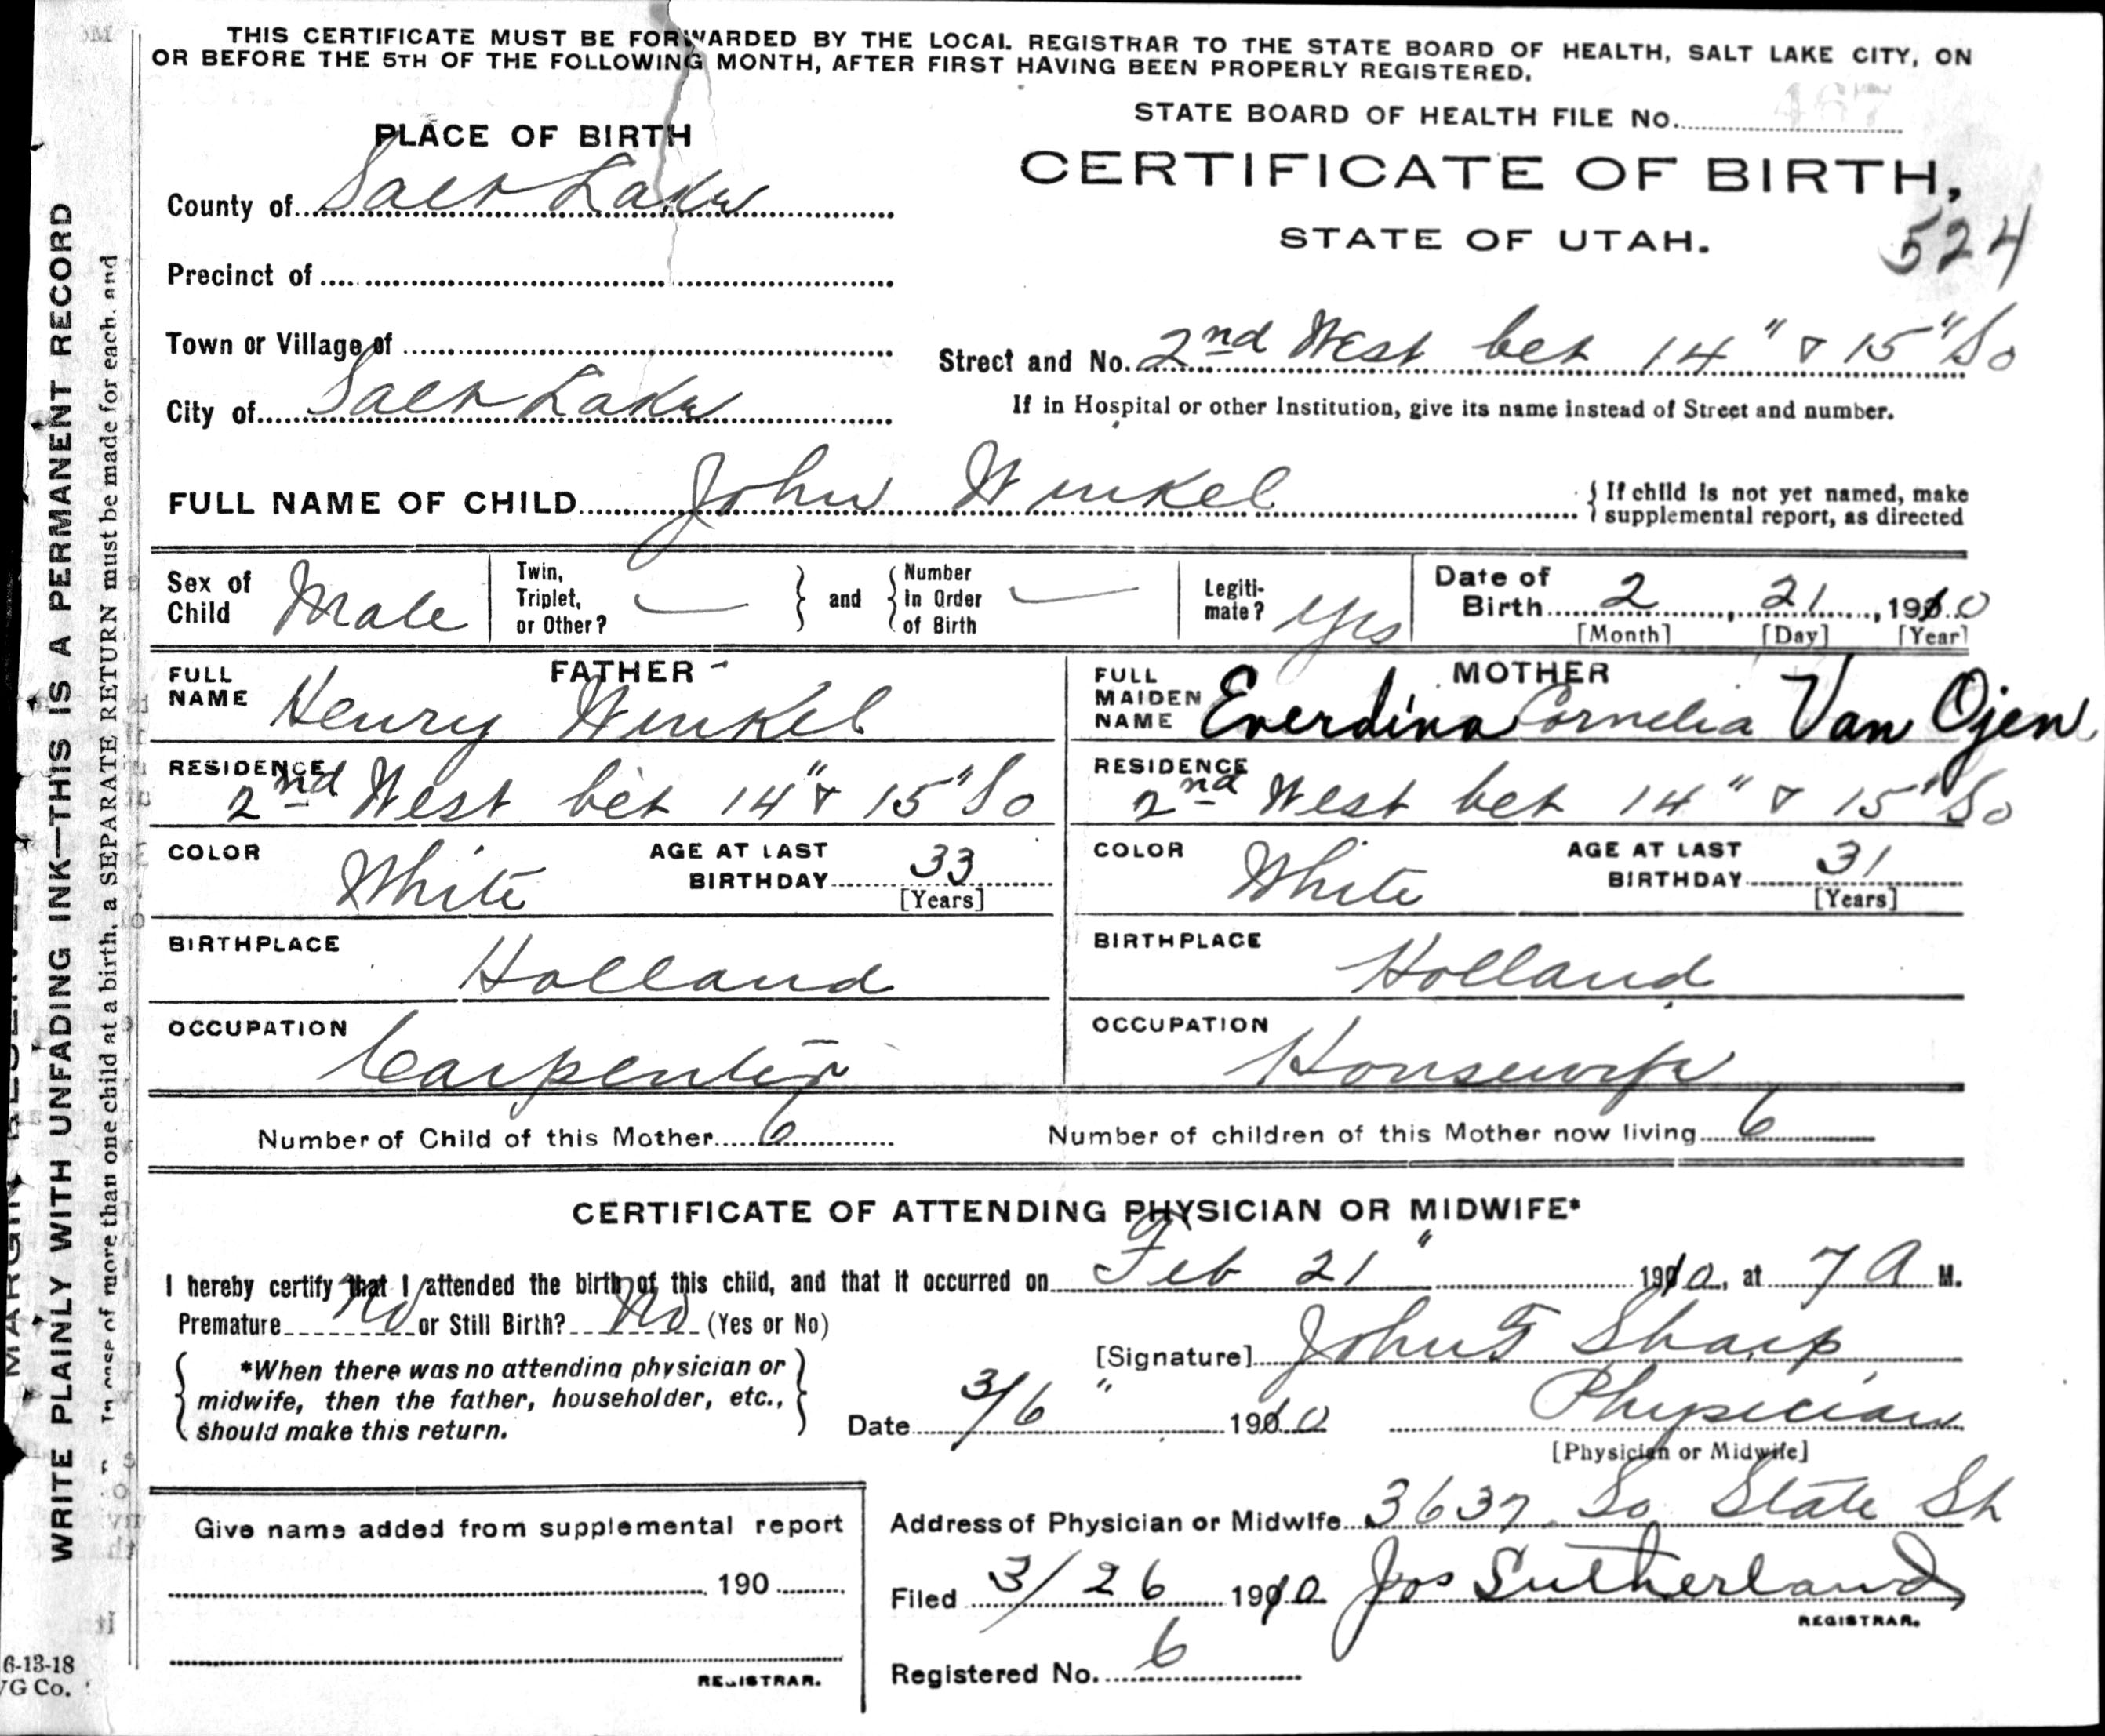 THIS CERTIFICATE MUST BE FORWARDED BY THE LOCAL REGISTRAR TO THE STATE BOARD OF HEALTH, SALT LAKE CITY, ON
OR BEFORE THE 5TH OF THE FOLLOWING MONTH, AFTER FIRST HAVING BEEN PROPERLY REGISTERED.
STATE BOARD OF HEALTH FILE No. 467
PLACE OF BIRTH
CERTIFICATE OF BIRTH,
County of Salt Lake
STATE OF UTAH.
524
Precinct of
Town or Village of
Street and No. 2nd West bet 14" & 15" So
City of Salt Lake
If in Hospital or other Institution, give its name instead of Street and number.
FULL NAME OF CHILD John Winkel
{ If child is not yet named, make supplemental report, as directed
Sex of Child Male
Twin, Triplet, or Other? —
} and {
Number in Order of Birth —
Legitimate? Yes
Date of Birth 2, 21, 1910
[Month] [Day] [Year]
FATHER
FULL NAME Henry Winkel
MOTHER
FULL MAIDEN NAME Everdina Cornelia Van Ojen
RESIDENCE 2nd West bet 14" & 15" So
RESIDENCE 2nd West bet 14" & 15" So
COLOR White
AGE AT LAST BIRTHDAY 33 [Years]
COLOR White
AGE AT LAST BIRTHDAY 31 [Years]
BIRTHPLACE Holland
BIRTHPLACE Holland
OCCUPATION Carpenter
OCCUPATION Housewife
Number of Child of this Mother 6
Number of children of this Mother now living 6
CERTIFICATE OF ATTENDING PHYSICIAN OR MIDWIFE*
I hereby certify that I attended the birth of this child, and that it occurred on Feb 21" 1910, at 7 A M.
Premature No or Still Birth? No (Yes or No)
[Signature] John F Sharp
{ *When there was no attending physician or
midwife, then the father, householder, etc.,
should make this return. }
Date 3/6" 1910
Physician
[Physician or Midwife]
Give name added from supplemental report
Address of Physician or Midwife 3637 So State St
190
Filed 3/26 1910 Jos Sutherland
REGISTRAR.
Registered No. 6
REGISTRAR.
WRITE PLAINLY WITH UNFADING INK—THIS IS A PERMANENT RECORD
case of more than one child at a birth, a SEPARATE RETURN must be made for each, and
6-13-18
VG Co.